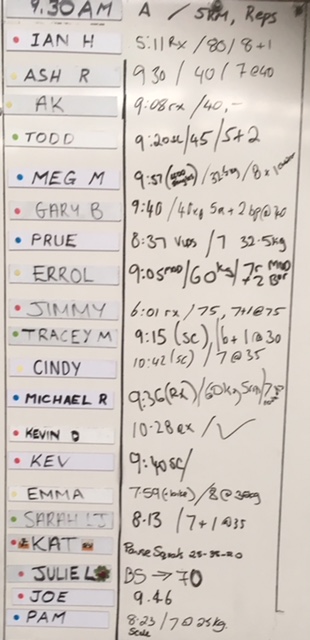 9.30AM A / 5RM, Reps
IAN H 5:11 Rx / 80 / 8+1
ASH R 930 / 40 / 7@40
AK 9:08rx / 40, -
TODD 9:20sc / 45 / 5+2
MEG M 9:57 / 32.5kg / 8 x
GARY B 9:40 /
PRUE 8:37 / 7 32.5kg
ERROL 9:05 / 60kg /
JIMMY 6:01 rx / 75, 7+1@75
TRACEY M 9:15 (sc) / 6+1@30
CINDY 10:42 (sc) / 7@35
MICHAEL R 9:36 (Rx) / 60kg
KEVIN D 10-28 rx / ✓
KEV 9:40 sc /
EMMA 7:59 / 8@
SARAH 8.13 / 7+1@35
KAT Pause Squats
JULIE L BS → 70
JOE 9.46
PAM 8:23 / 7@25kg
Scale